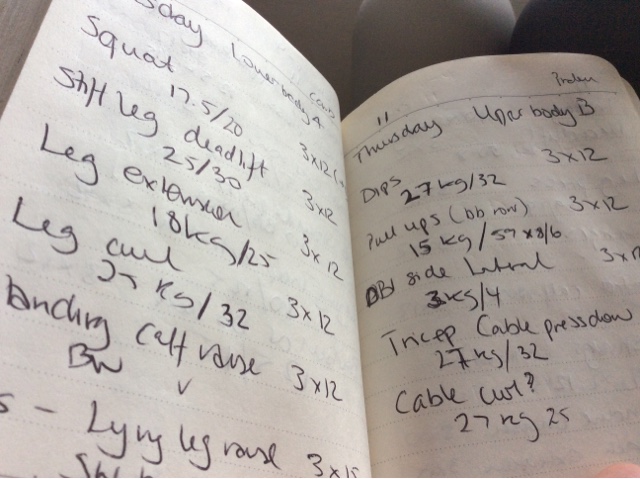 sday Lower body A
Squat 3x12
17.5/20
Stiff leg deadlift 3x12
25/30
Leg extension 3x12
18kg/25
Leg curl 3x12
25 kg/32
tanding calf raise 3x12
BW
s - Lying leg raise 3x15
11
Thursday Upper body B
Dips 3x12
27kg/32
Pull ups (bb row) 3x12
15 kg/
DB side lateral 3x1
3kg/4
Tricep Cable pressdown
27kg/32
Cable curl?
27kg 25